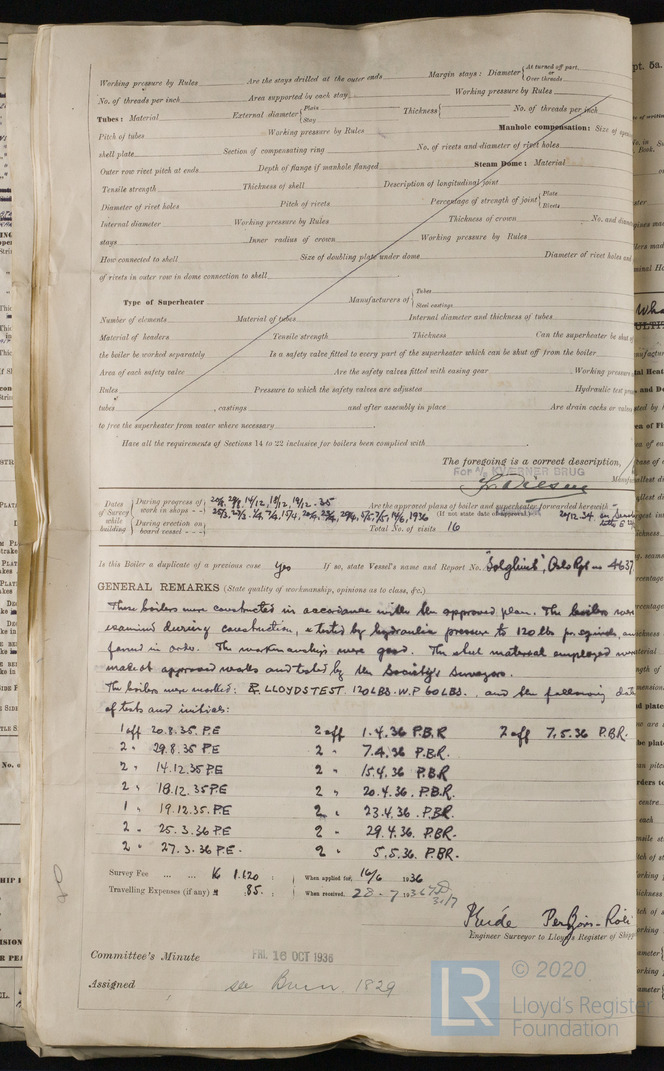 Working pressure by Rules Are the stays drilled at the outer ends Margin stays: Diameter { At turned off part. or Over threads
No. of threads per inch Area supported by each stay Working pressure by Rules
Tubes: Material External diameter { Plain Stay Thickness { No. of threads per inch
Pitch of tubes Working pressure by Rules Manhole compensation: Size of
shell plate Section of compensating ring No. of rivets and diameter of rivet holes
Outer row rivet pitch at ends Depth of flange if manhole flanged Steam Dome: Material
Tensile strength Thickness of shell Description of longitudinal joint
Diameter of rivet holes Pitch of rivets Percentage of strength of joint { Plate Rivets
Internal diameter Working pressure by Rules Thickness of crown No. and
stays Inner radius of crown Working pressure by Rules
How connected to shell Size of doubling plate under dome Diameter of rivet holes and
of rivets in outer row in dome connection to shell
Type of Superheater Manufacturers of { Tubes Steel castings
Number of elements Material of tubes Internal diameter and thickness of tubes
Material of headers Tensile strength Thickness Can the superheater be shut
the boiler be worked separately Is a safety valve fitted to every part of the superheater which can be shut off from the boiler
Area of each safety valve Are the safety valves fitted with easing gear Working pressure
Rules Pressure to which the safety valves are adjusted Hydraulic test
tubes , castings and after assembly in place Are drain cocks or
to free the superheater from water where necessary
Have all the requirements of Sections 14 to 22 inclusive for boilers been complied with
The foregoing is a correct description,
For A/S KVÆRNER BRUG
Dates of Survey while building { During progress of work in shops - - 14/12, 18/12, 19/12 - 35 Are the approved plans of boiler and superheater forwarded herewith
During erection on board vessel - - - (If not state date of approval.) 20/12.34
Total No. of visits 16
Is this Boiler a duplicate of a previous case Yes If so, state Vessel's name and Report No. "Solglimt", Oslo Rpt no 4637
GENERAL REMARKS (State quality of workmanship, opinions as to class, &c.)
These boilers were constructed in accordance with the approved plan. The boilers were
examined during construction, & tested by hydraulic pressure to 120 lbs pr. sq inch, and
found in order. The workmanship were good. The steel material employed were
made at approved works and tested by the Society's Surveyors.
The boilers were marked: LLOYDS TEST 120 LBS. W.P 60 LBS., and the following date
of tests and initials:
1 off 20.8.35 P.E 2 off 1.4.36 P.B.R 2 off 7.5.36 P.B.R.
2 " 29.8.35 P.E 2 " 7.4.36 P.B.R.
2 " 14.12.35 P.E 2 " 15.4.36 P.B.R.
2 " 18.12.35 P.E 2 " 20.4.36. P.B.R.
1 " 19.12.35. P.E 2 " 23.4.36. P.B.R.
2 " 25.3.36 P.E 2 " 29.4.36. P.B.R.
2 " 27.3.36 P.E. 2 " 5.5.36. P.B.R.
Survey Fee ... ... K 1.120 : When applied for, 16/6 1936
Travelling Expenses (if any) " 85. : When received, 28-7 1936
Engineer Surveyor to Lloyd's Register of
Committee's Minute FRI. 16 OCT 1936
Assigned see 1829
LR © 2020
Lloyd's Register
Foundation